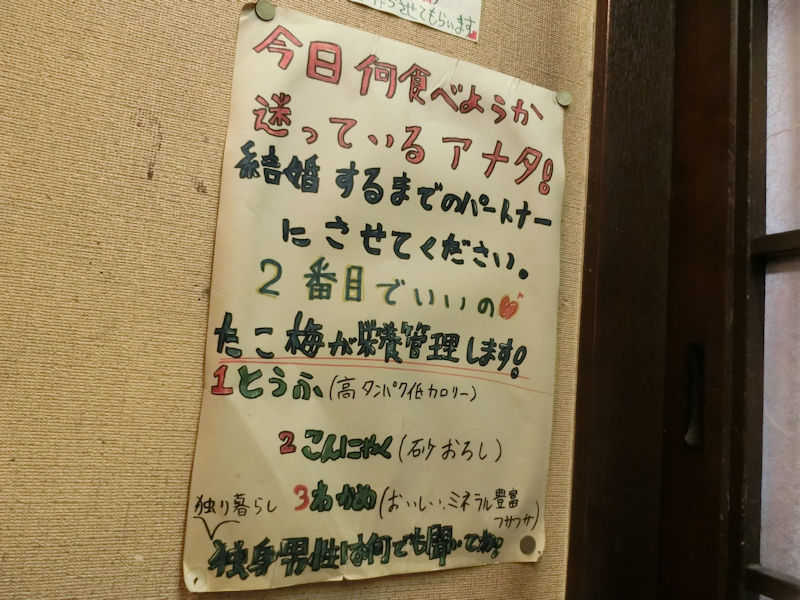 作らせてもらいます
今日何食べようか
迷っているアナタ!
結婚するまでのパートナー
にさせてください。
2番目でいいの
たこ梅が栄養管理します!
1とうふ(高タンパク低カロリー)
2こんにゃく(砂おろし)
3わかめ(おいしい、ミネラル豊富
フサフサ)
独り暮らし
独身男性は何でも聞いてね!